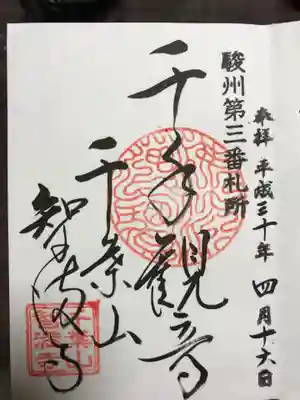 奉拝 平成三十年 四月十六日
駿州第三番札所
千手観音
千葉山
智満寺